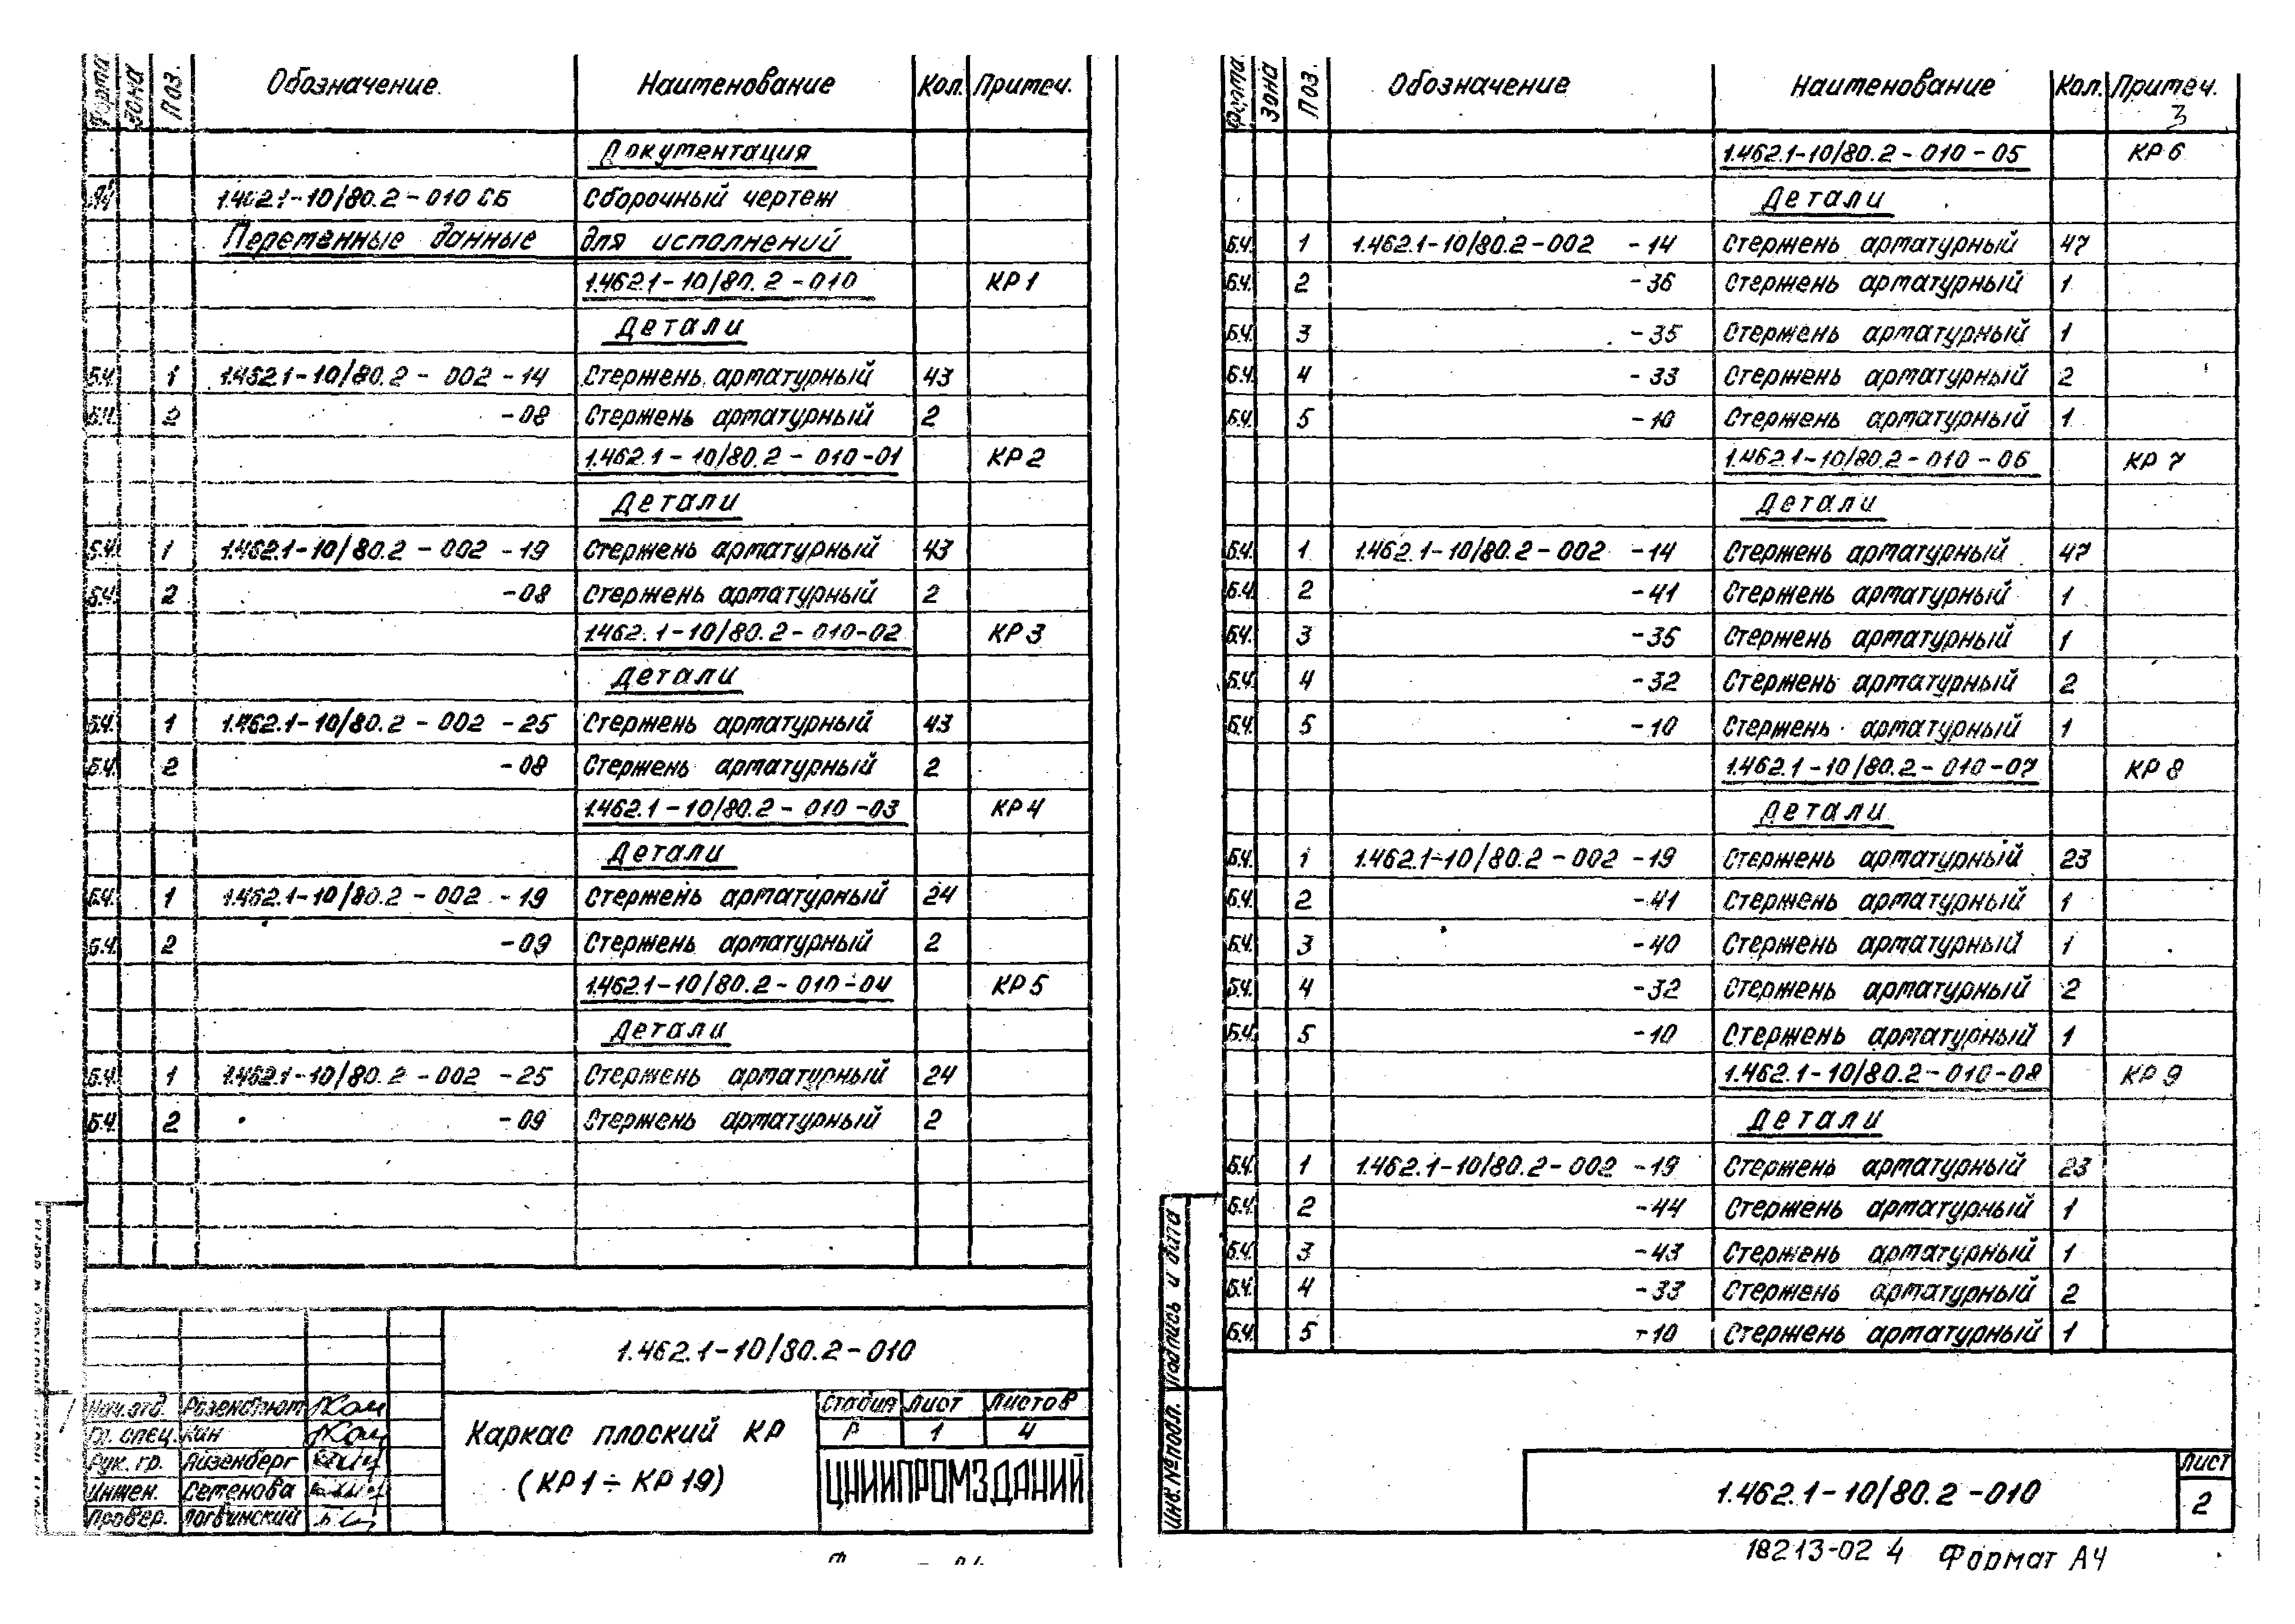 Формат Зона Поз. Обозначение Наименование Кол. Примеч.
Документация
1.462.1-10/80.2-010 СБ Сборочный чертеж
Переменные данные для исполнений
1.462.1-10/80.2-010 КР1
Детали
Б.Ч. 1 1.462.1-10/80.2-002-14 Стержень арматурный 43
Б.Ч. 2 -08 Стержень арматурный 2
1.462.1-10/80.2-010-01 КР2
Детали
Б.Ч. 1 1.462.1-10/80.2-002-19 Стержень арматурный 43
Б.Ч. 2 -08 Стержень арматурный 2
1.462.1-10/80.2-010-02 КР3
Детали
Б.Ч. 1 1.462.1-10/80.2-002-25 Стержень арматурный 43
Б.Ч. 2 -08 Стержень арматурный 2
1.462.1-10/80.2-010-03 КР4
Детали
Б.Ч. 1 1.462.1-10/80.2-002-19 Стержень арматурный 24
Б.Ч. 2 -09 Стержень арматурный 2
1.462.1-10/80.2-010-04 КР5
Детали
Б.Ч. 1 1.462.1-10/80.2-002-25 Стержень арматурный 24
Б.Ч. 2 -09 Стержень арматурный 2
1.462.1-10/80.2-010
Нач.отд. Розенблюм
Гл. спец. Кан
Рук. гр. Айзенберг
Инжен. Семенова
Провер. Логвинский
Каркас плоский КР
(КР1÷КР19)
Стадия Лист Листов
Р 1 4
ЦНИИПРОМЗДАНИЙ
Формат Зона Поз. Обозначение Наименование Кол. Примеч.
3
1.462.1-10/80.2-010-05 КР6
Детали
Б.Ч. 1 1.462.1-10/80.2-002 -14 Стержень арматурный 47
Б.Ч. 2 -36 Стержень арматурный 1
Б.Ч. 3 -35 Стержень арматурный 1
Б.Ч. 4 -33 Стержень арматурный 2
Б.Ч. 5 -10 Стержень арматурный 1
1.462.1-10/80.2-010-06 КР7
Детали
Б.Ч. 1 1.462.1-10/80.2-002 -14 Стержень арматурный 47
Б.Ч. 2 -41 Стержень арматурный 1
Б.Ч. 3 -35 Стержень арматурный 1
Б.Ч. 4 -32 Стержень арматурный 2
Б.Ч. 5 -10 Стержень арматурный 1
1.462.1-10/80.2-010-07 КР8
Детали
Б.Ч. 1 1.462.1-10/80.2-002 -19 Стержень арматурный 23
Б.Ч. 2 -41 Стержень арматурный 1
Б.Ч. 3 -40 Стержень арматурный 1
Б.Ч. 4 -32 Стержень арматурный 2
Б.Ч. 5 -10 Стержень арматурный 1
1.462.1-10/80.2-010-08 КР9
Детали
Б.Ч. 1 1.462.1-10/80.2-002 -19 Стержень арматурный 23
Б.Ч. 2 -44 Стержень арматурный 1
Б.Ч. 3 -43 Стержень арматурный 1
Б.Ч. 4 -33 Стержень арматурный 2
Б.Ч. 5 -10 Стержень арматурный 1
Инв.№подл. Подпись и дата
1.462.1-10/80.2-010
Лист
2
18213-02 4 Формат А4